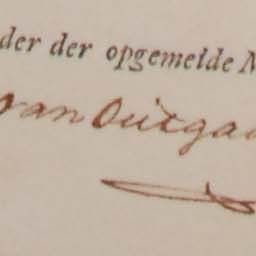 der der opgemelde M
van Outga